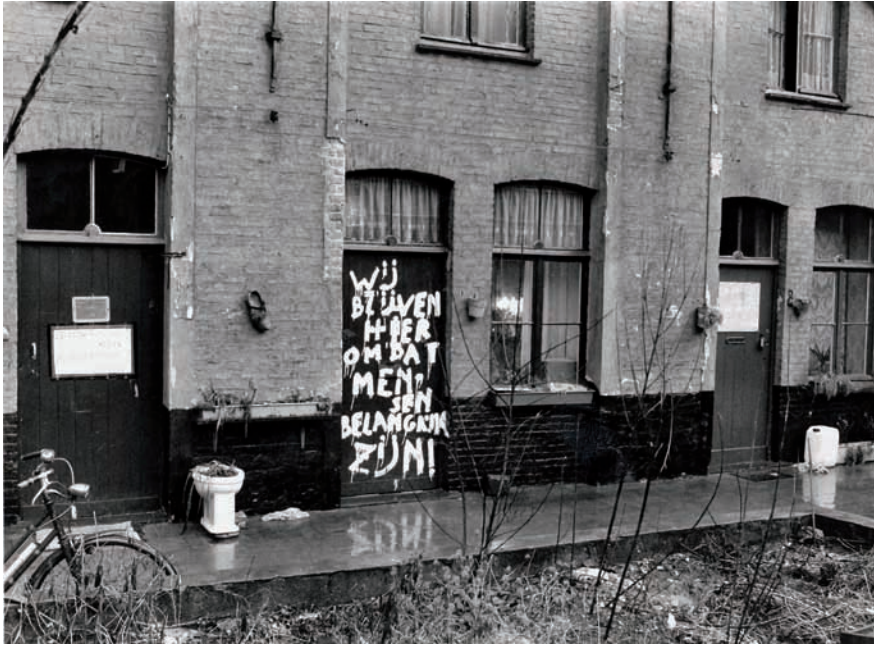 WIJ
BLIJVEN
HIER
OMDAT
MEN-
SEN
BELANGRIJK
ZIJN!